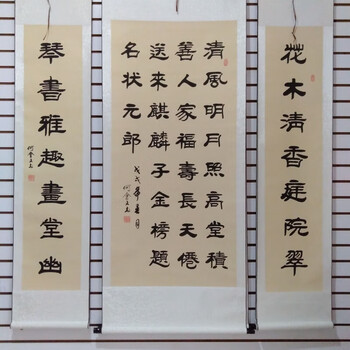 花木清香庭院翠
清風明月照高堂積
善人家福壽長天僊
送來麒麟子金榜題
名狀元郎
戊戌年夏月
琴書雅趣畫堂幽